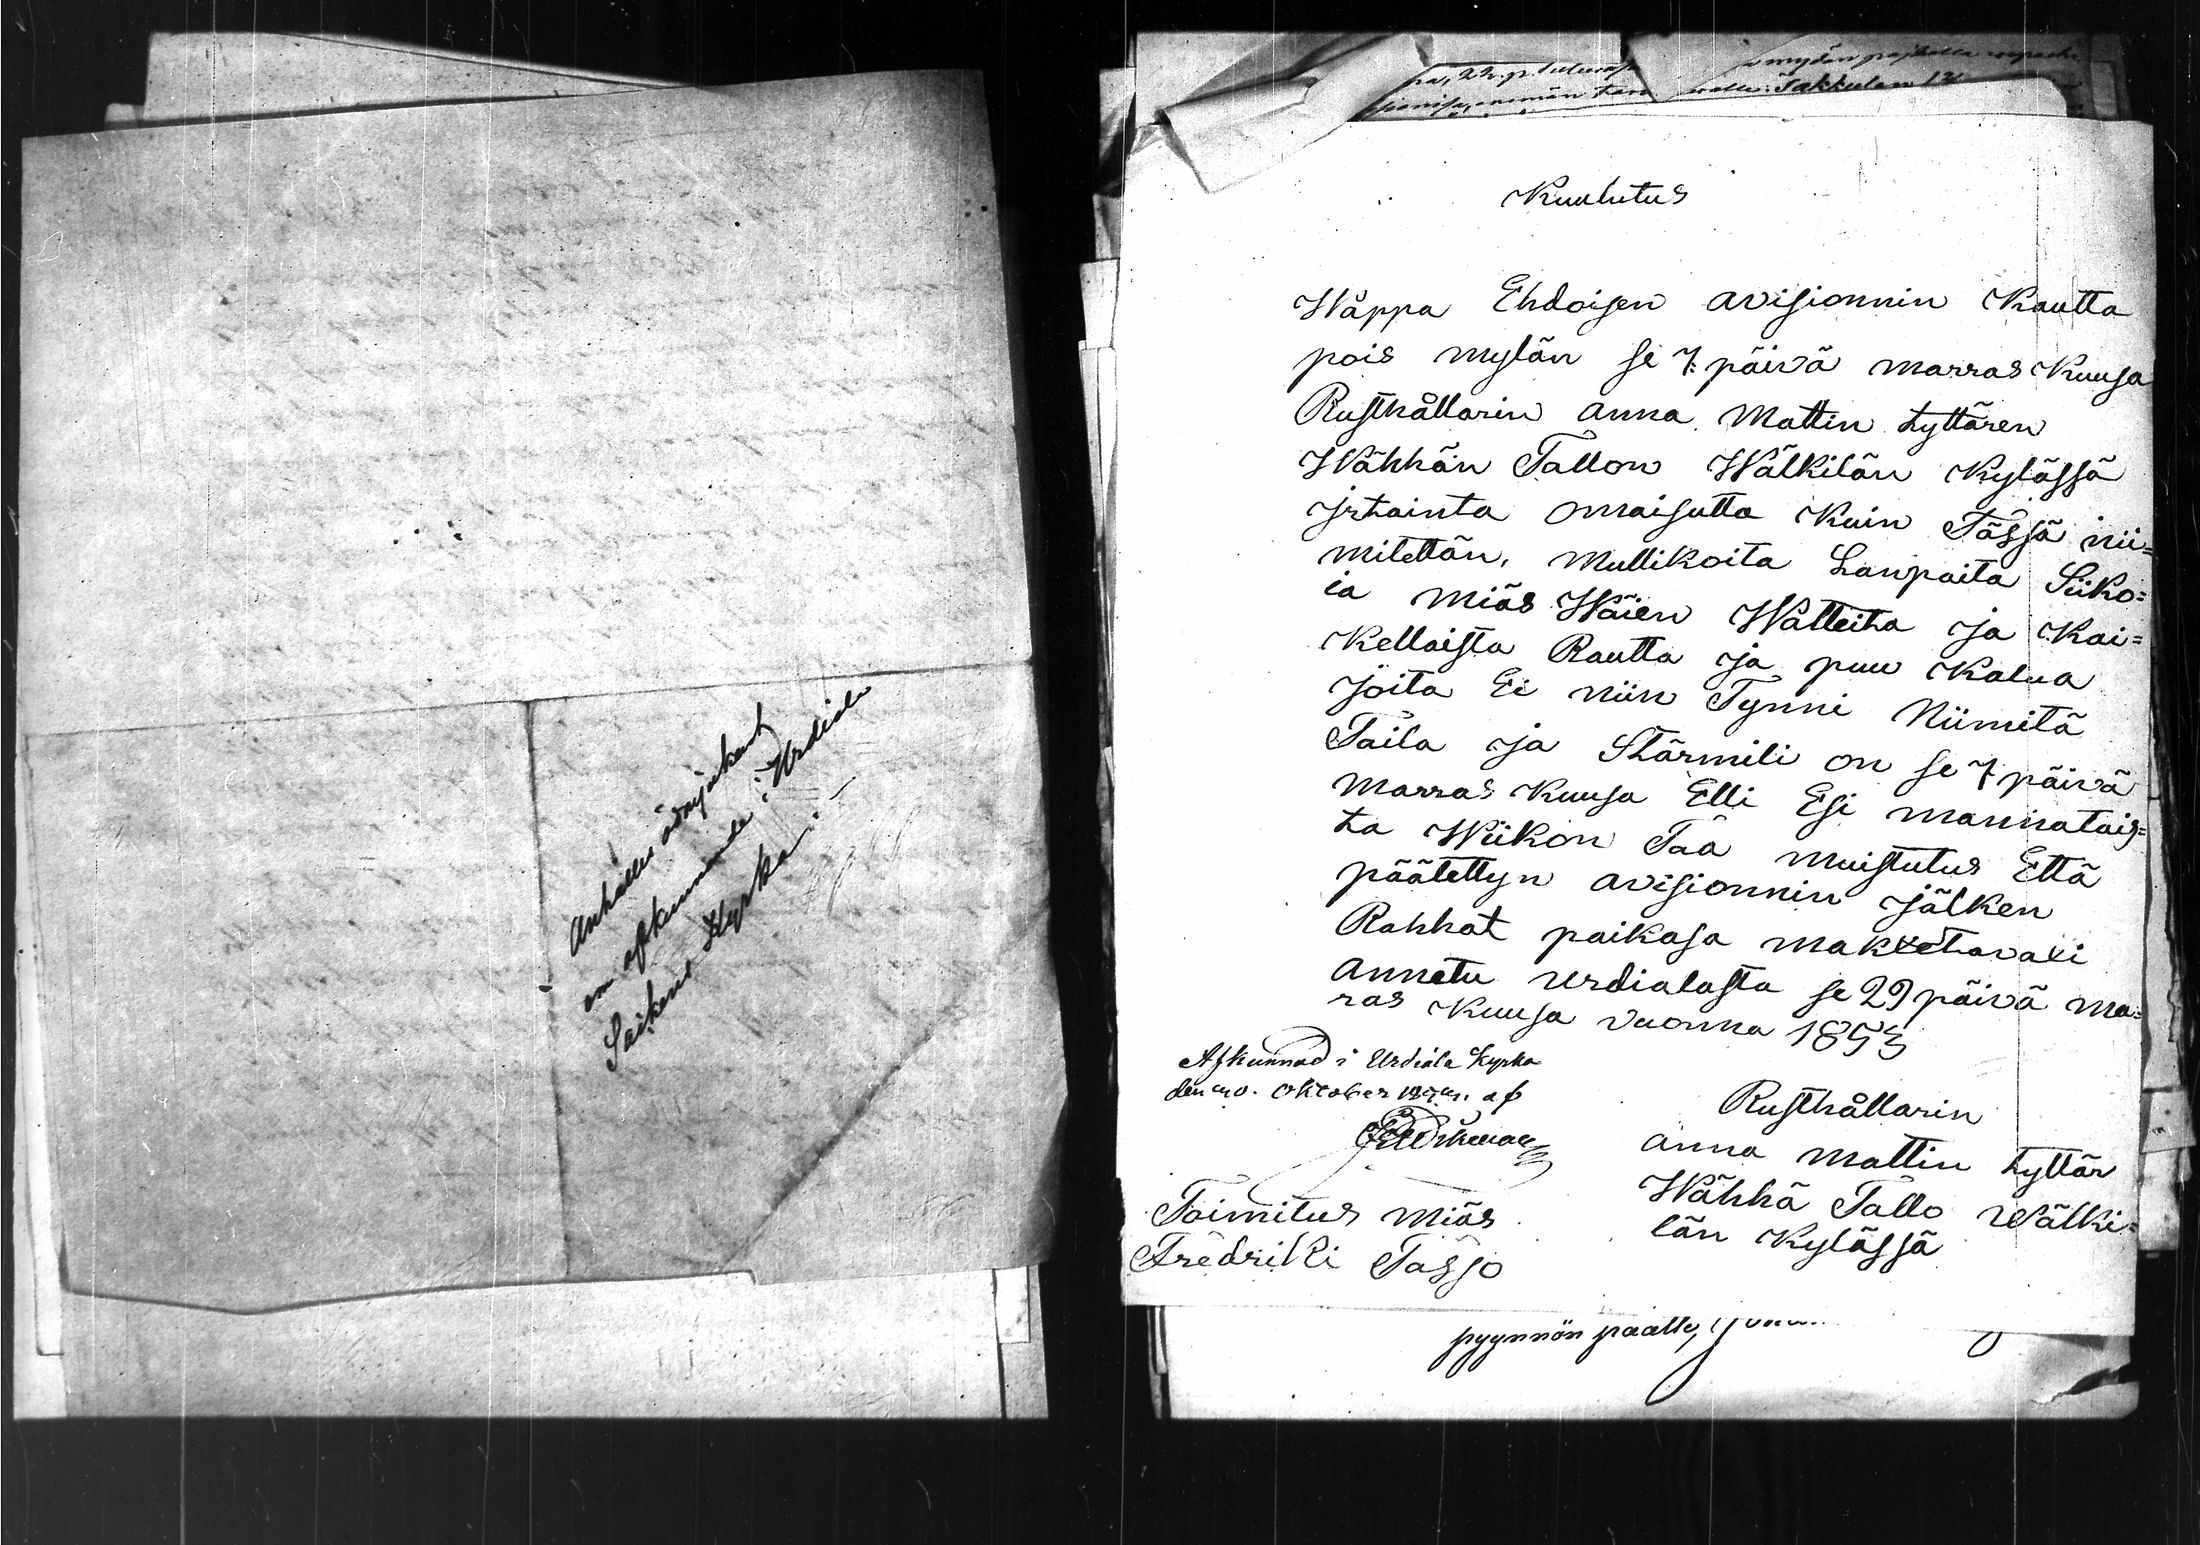 Anhålles ödmjukast
om afkunnande i Urdiala
Kyrka
Kuulutus
Wåppa Ehdoisen avisionnin Kautta
pois myiän se 7: päivä marras Kuusa
Rusthållarin Anna Mattin tyttären
Wähhän Tallon Wälkilän Kylässä
jrtainta omaisutta Kuin Tässä nii=
mitettän, Mullikoita Lampaita Siiko=
ia miös Wäien Watteita ja Kai=
Kellaista Rautta ja puu Kalua
joita Ei niin Tynni Niimitä
Taita ja Stärmili on se 7 päivä
marras Kuusa Elli Esi mannatais=
ta Wiikon Tää muistutus Että
päätettyn avisionnin jälken
Rahhat paikasa maksettavaxi
Annetu Urdialasta se 29 päivä Ma=
ras Kuusa vuonna 1853
Afkunnad i Urdiala Kyrka
den 30. Oktober 1853. af
Rusthållarin
Anna Mattin tyttär
Wähhä Tallo Wälki=
län Kylässä
Toimitus Miös
Fredriki Tasso
pyynnön päälle,